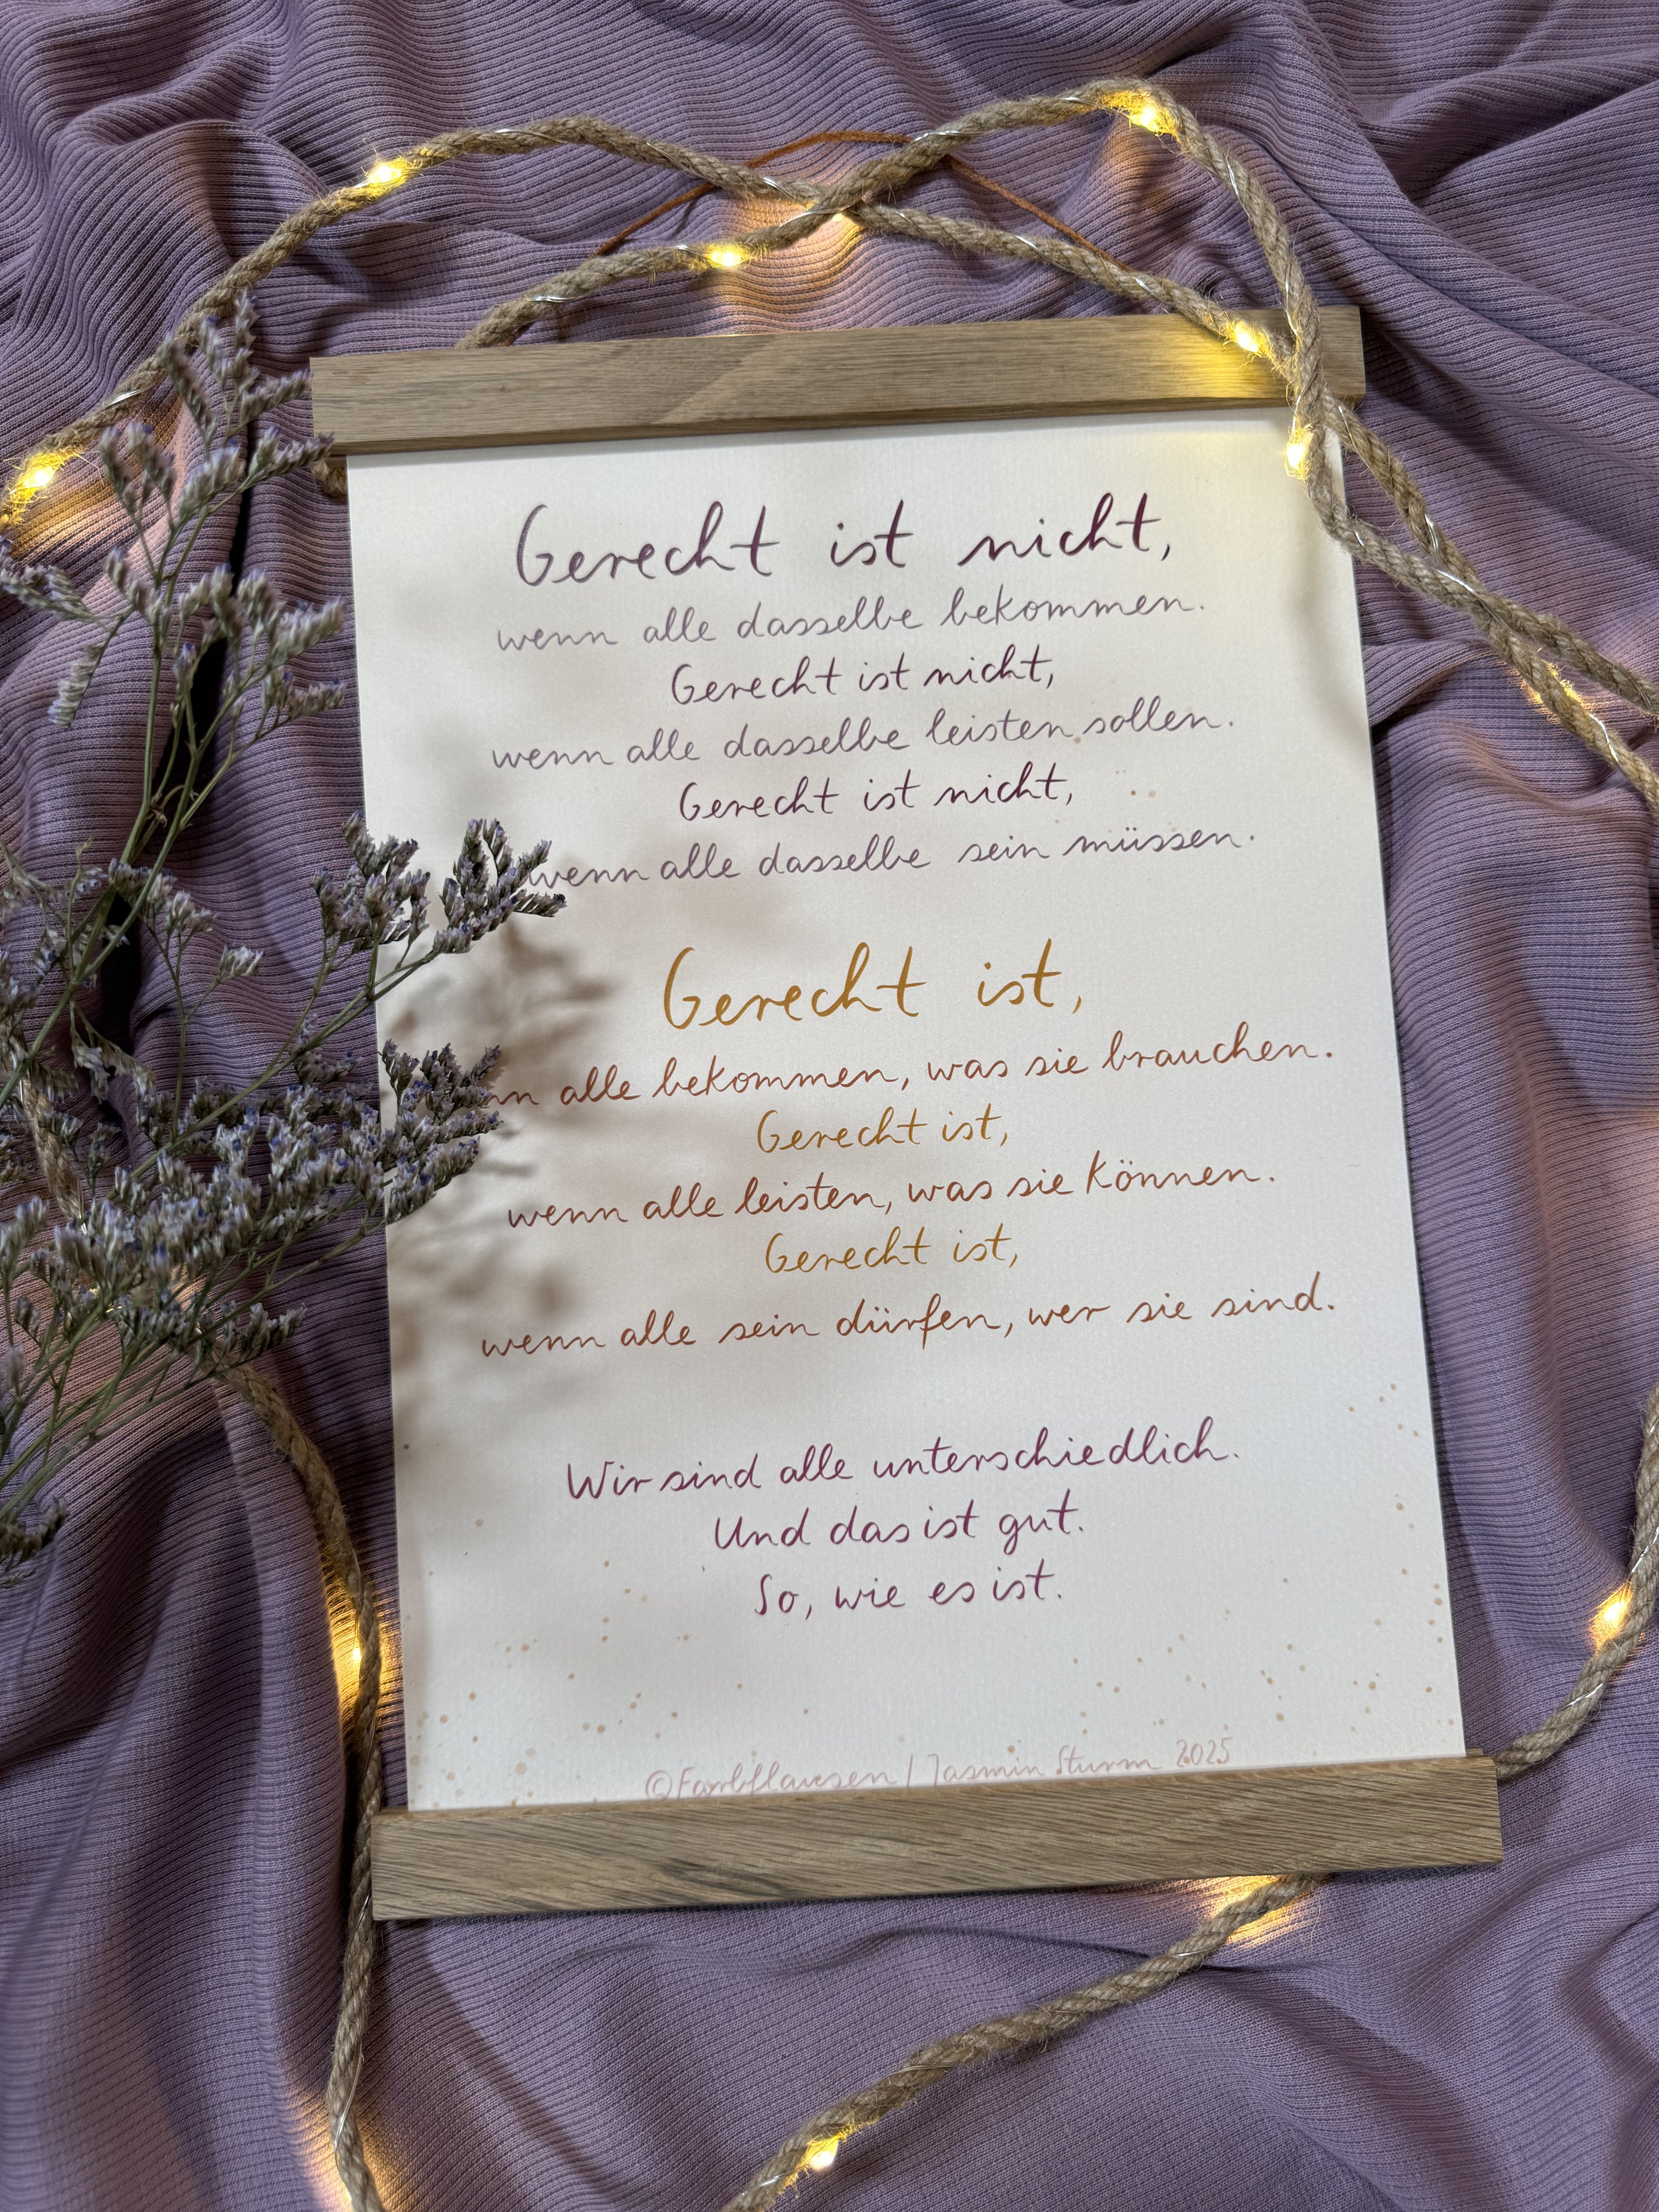 Gerecht ist nicht,
wenn alle dasselbe bekommen.
Gerecht ist nicht,
wenn alle dasselbe leisten sollen.
Gerecht ist nicht,
wenn alle dasselbe sein müssen.
Gerecht ist,
alle bekommen, was sie brauchen.
Gerecht ist,
wenn alle leisten, was sie können.
Gerecht ist,
wenn alle sein dürfen, wer sie sind.
Wir sind alle unterschiedlich.
Und das ist gut.
So, wie es ist.
©Farbflausen / Jasmin Sturm 2025